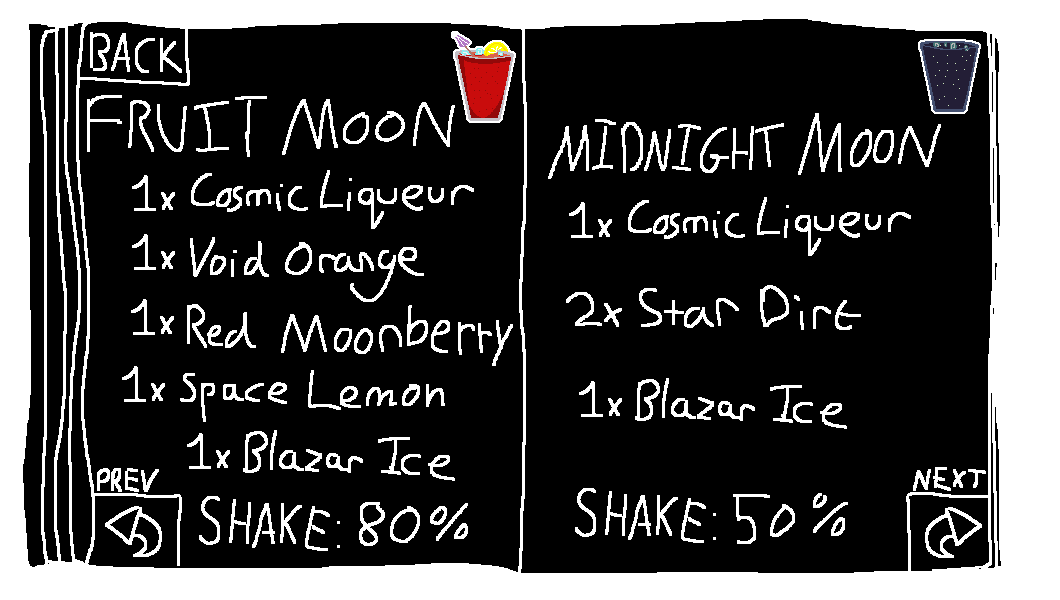 BACK
FRUIT MOON
1x Cosmic Liqueur
1x Void Orange
1x Red Moonberry
1x Space Lemon
1x Blazar Ice
SHAKE: 80%
PREV
MIDNIGHT MOON
1x Cosmic Liqueur
2x Star Dirt
1x Blazar Ice
SHAKE: 50%
NEXT